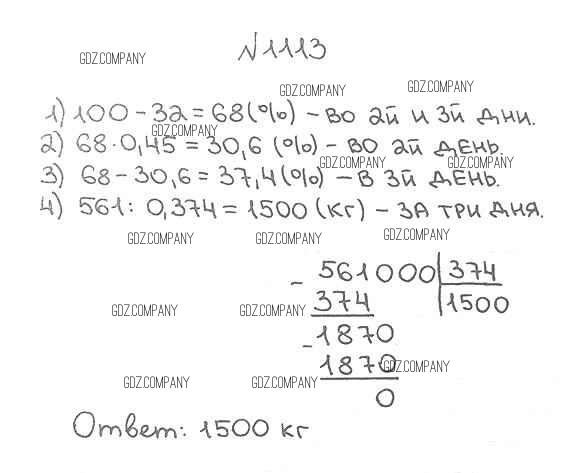 N1113
GDZ.COMPANY
GDZ.COMPANY GDZ.COMPANY
1) 100 - 32 = 68 (%) - ВО 2Й И 3Й ДНИ.
GDZ.COMPANY
2) 68 · 0,45 = 30,6 (%) - ВО 2Й ДЕНЬ.
GDZ.COMPANY GDZ.COMPANY
3) 68 - 30,6 = 37,4 (%) - В 3Й ДЕНЬ.
4) 561 : 0,374 = 1500 (КГ) - ЗА ТРИ ДНЯ.
GDZ.COMPANY GDZ.COMPANY GDZ.COMPANY
- 561000 | 374
374 | 1500
GDZ.COMPANY GDZ.COMPANY
- 1870
1870 GDZ.COMPANY
GDZ.COMPANY GDZ.COMPANY
0
Ответ: 1500 кг